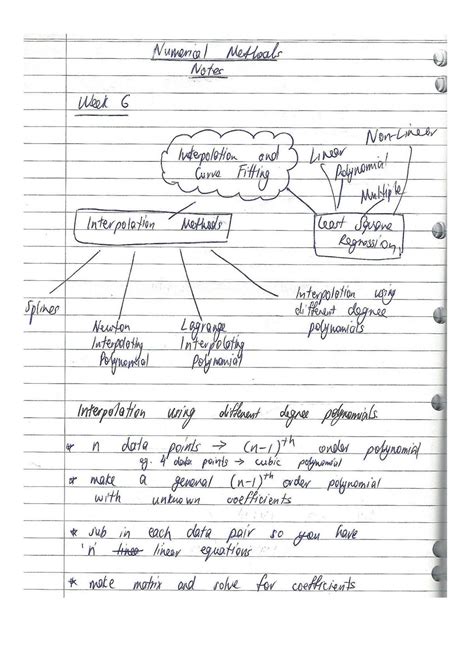 Numerical Methods
Notes
Week 6
Interpolation and
Curve Fitting
Linear
Polynomial
Multiple
Non-Linear
Interpolation Methods
Least Square
Regression
Splines
Newton
Interpolating
Polynomial
Lagrange
Interpolating
Polynomial
Interpolation using
different degree
polynomials
Interpolation using different degree polynomials
* n data points → (n-1)th order polynomial
eg. 4 data points → cubic polynomial
* make a general (n-1)th order polynomial
with unknown coefficients
* sub in each data pair so you have
'n' linear equations
* make matrix and solve for coefficients